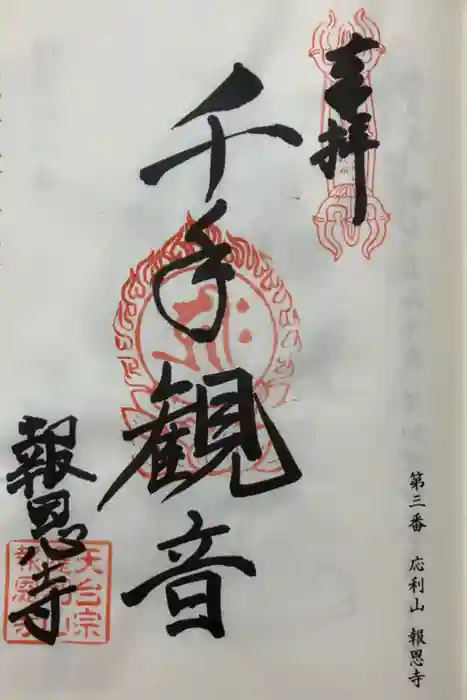 奉拝
千手観音
報恩寺
天台宗
第三番 応利山 報恩寺